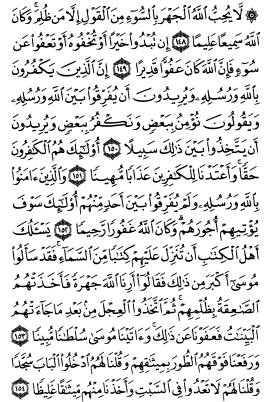 ۞ لَّا يُحِبُّ ٱللَّهُ ٱلْجَهْرَ بِٱلسُّوٓءِ مِنَ ٱلْقَوْلِ إِلَّا مَن ظُلِمَ ۚ وَكَانَ
ٱللَّهُ سَمِيعًا عَلِيمًا ١٤٨ إِن تُبْدُوا۟ خَيْرًا أَوْ تُخْفُوهُ أَوْ تَعْفُوا۟ عَن
سُوٓءٍ فَإِنَّ ٱللَّهَ كَانَ عَفُوًّا قَدِيرًا ١٤٩ إِنَّ ٱلَّذِينَ يَكْفُرُونَ
بِٱللَّهِ وَرُسُلِهِۦ وَيُرِيدُونَ أَن يُفَرِّقُوا۟ بَيْنَ ٱللَّهِ وَرُسُلِهِۦ
وَيَقُولُونَ نُؤْمِنُ بِبَعْضٍ وَنَكْفُرُ بِبَعْضٍ وَيُرِيدُونَ
أَن يَتَّخِذُوا۟ بَيْنَ ذَٰلِكَ سَبِيلًا ١٥٠ أُو۟لَٰٓئِكَ هُمُ ٱلْكَٰفِرُونَ
حَقًّا ۚ وَأَعْتَدْنَا لِلْكَٰفِرِينَ عَذَابًا مُّهِينًا ١٥١ وَٱلَّذِينَ ءَامَنُوا۟
بِٱللَّهِ وَرُسُلِهِۦ وَلَمْ يُفَرِّقُوا۟ بَيْنَ أَحَدٍ مِّنْهُمْ أُو۟لَٰٓئِكَ سَوْفَ
يُؤْتِيهِمْ أُجُورَهُمْ ۗ وَكَانَ ٱللَّهُ غَفُورًا رَّحِيمًا ١٥٢ يَسْـَٔلُكَ
أَهْلُ ٱلْكِتَٰبِ أَن تُنَزِّلَ عَلَيْهِمْ كِتَٰبًا مِّنَ ٱلسَّمَآءِ ۚ فَقَدْ سَأَلُوا۟
مُوسَىٰٓ أَكْبَرَ مِن ذَٰلِكَ فَقَالُوٓا۟ أَرِنَا ٱللَّهَ جَهْرَةً فَأَخَذَتْهُمُ
ٱلصَّٰعِقَةُ بِظُلْمِهِمْ ۚ ثُمَّ ٱتَّخَذُوا۟ ٱلْعِجْلَ مِنۢ بَعْدِ مَا جَآءَتْهُمُ
ٱلْبَيِّنَٰتُ فَعَفَوْنَا عَن ذَٰلِكَ ۚ وَءَاتَيْنَا مُوسَىٰ سُلْطَٰنًا مُّبِينًا ١٥٣
وَرَفَعْنَا فَوْقَهُمُ ٱلطُّورَ بِمِيثَٰقِهِمْ وَقُلْنَا لَهُمُ ٱدْخُلُوا۟ ٱلْبَابَ سُجَّدًا
وَقُلْنَا لَهُمْ لَا تَعْدُوا۟ فِى ٱلسَّبْتِ وَأَخَذْنَا مِنْهُم مِّيثَٰقًا غَلِيظًا ١٥٤